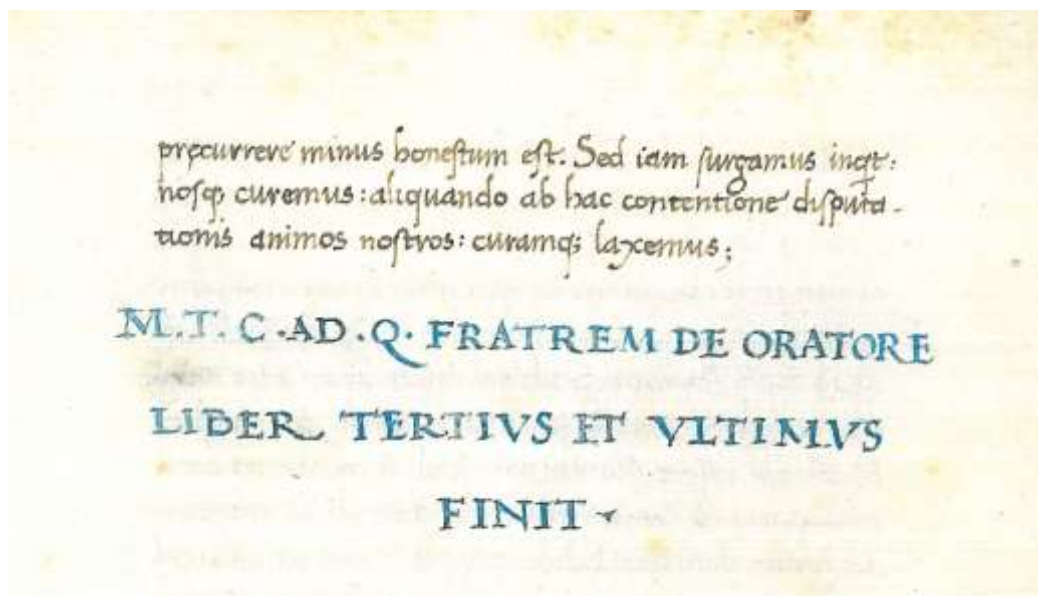 pręcurrere minus honestum est. Sed iam surgamus inqͥt:
nosq; curemus: aliquando ab hac contentione disputa-
tionis animos nostros: curamq; laxemus;
M.T.C.AD.Q.FRATREM DE ORATORE
LIBER TERTIVS ET VLTIMVS
FINIT